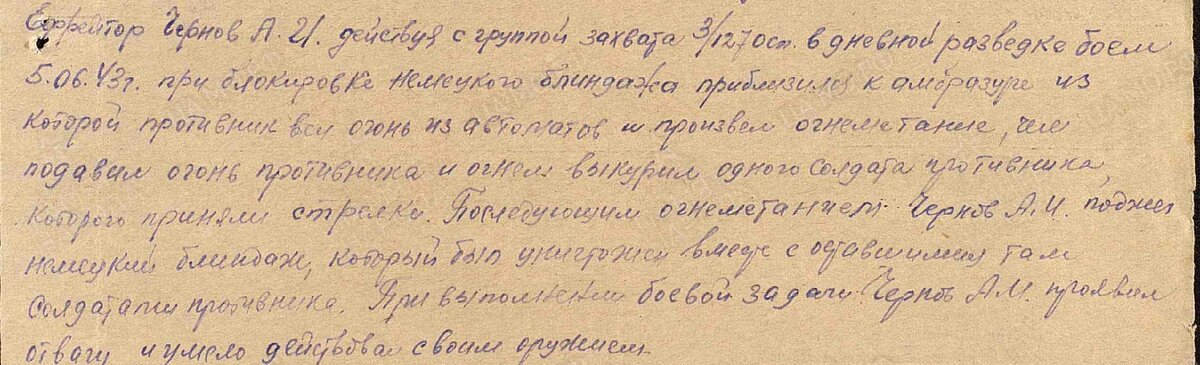 Ефрейтор Чернов А.И. действуя с группой захвата 3/1270сп. в дневной разведке боем
5.06.43г. при блокировке немецкого блиндажа приблизился к амбразуре из
которой противник вел огонь из автоматов и произвел огнеметание, чем
подавил огонь противника и огнем выкурил одного солдата противника,
которого приняли стрелки. Последующим огнеметанием Чернов А.И. поджег
немецкий блиндаж, который был уничтожен вместе с оставшимися там
солдатами противника. При выполнении боевой задачи Чернов А.И. проявил
отвагу и умело действовал своим оружием.